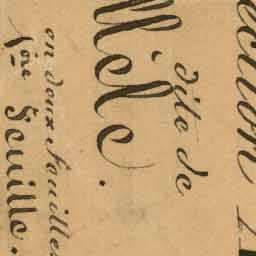 ection
dite de
en deux feuilles
1ère Feuille.